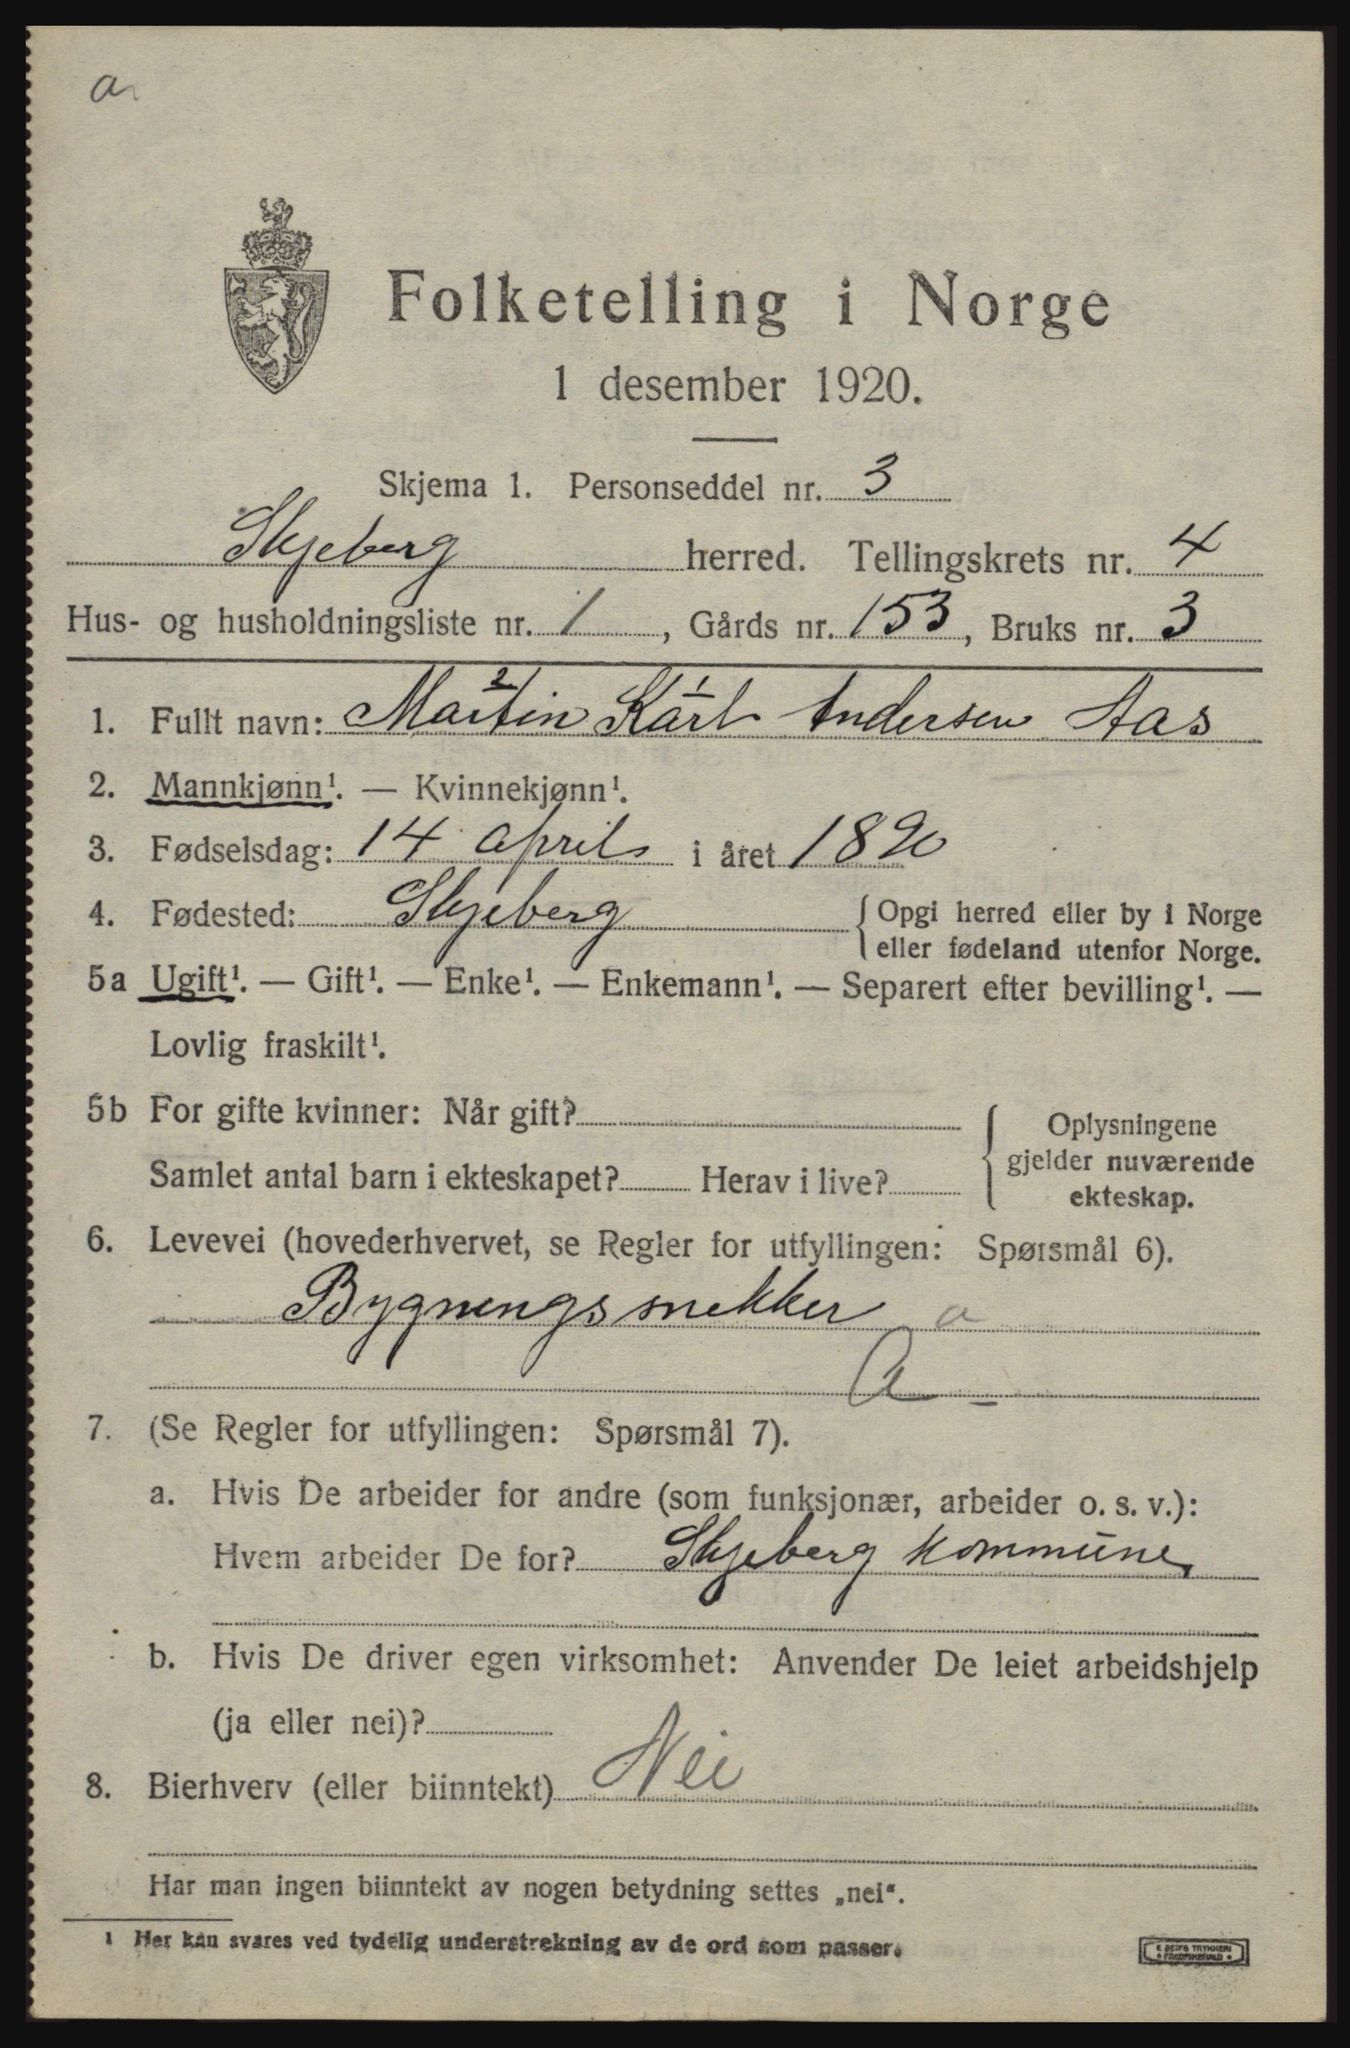 a.
Folketelling i Norge
1 desember 1920.
Skjema 1. Personseddel nr. 3
Skjeberg herred. Tellingskrets nr. 4
Hus- og husholdningsliste nr. 1, Gårds nr. 153, Bruks nr. 3
2 1
1. Fullt navn: Martin Karl Andersen Aas
2. Mannkjønn¹. — Kvinnekjønn¹.
3. Fødselsdag: 14 april i året 1890
4. Fødested: Skjeberg { Opgi herred eller by i Norge
eller fødeland utenfor Norge.
5a Ugift¹. — Gift¹. — Enke¹. — Enkemann¹. — Separert efter bevilling¹. —
Lovlig fraskilt¹.
5b For gifte kvinner: Når gift? { Oplysningene
gjelder nuværende
Samlet antal barn i ekteskapet? Herav i live? ekteskap.
6. Levevei (hovederhvervet, se Regler for utfyllingen: Spørsmål 6).
Bygningssnekker a
A —
7. (Se Regler for utfyllingen: Spørsmål 7).
a. Hvis De arbeider for andre (som funksjonær, arbeider o. s. v.):
Hvem arbeider De for? Skjeberg Kommune
b. Hvis De driver egen virksomhet: Anvender De leiet arbeidshjelp
(ja eller nei)?
8. Bierhverv (eller biinntekt) Nei
Har man ingen biinntekt av nogen betydning settes „nei“.
1 Her kan svares ved tydelig understrekning av de ord som passer.
E BERG TRYKKERI
FREDRIKSHALD